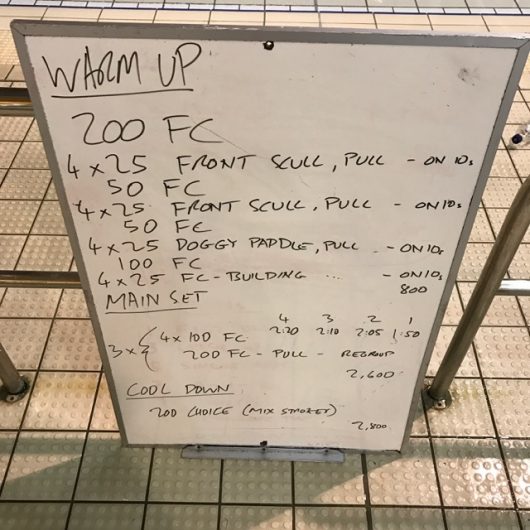 WARM UP
200 FC
4 x 25 FRONT SCULL, PULL - ON 10s
50 FC
4 x 25 FRONT SCULL, PULL - ON 10s
50 FC
4 x 25 DOGGY PADDLE, PULL - ON 10s
100 FC
4 x 25 FC - BUILDING ... - ON 10s
800
MAIN SET
4 3 2 1
3 x { 4 x 100 FC 2:20 2:10 2:05 1:50
200 FC - PULL - REGROUP
2,600
COOL DOWN
200 CHOICE (MIX STROKES)
2,800